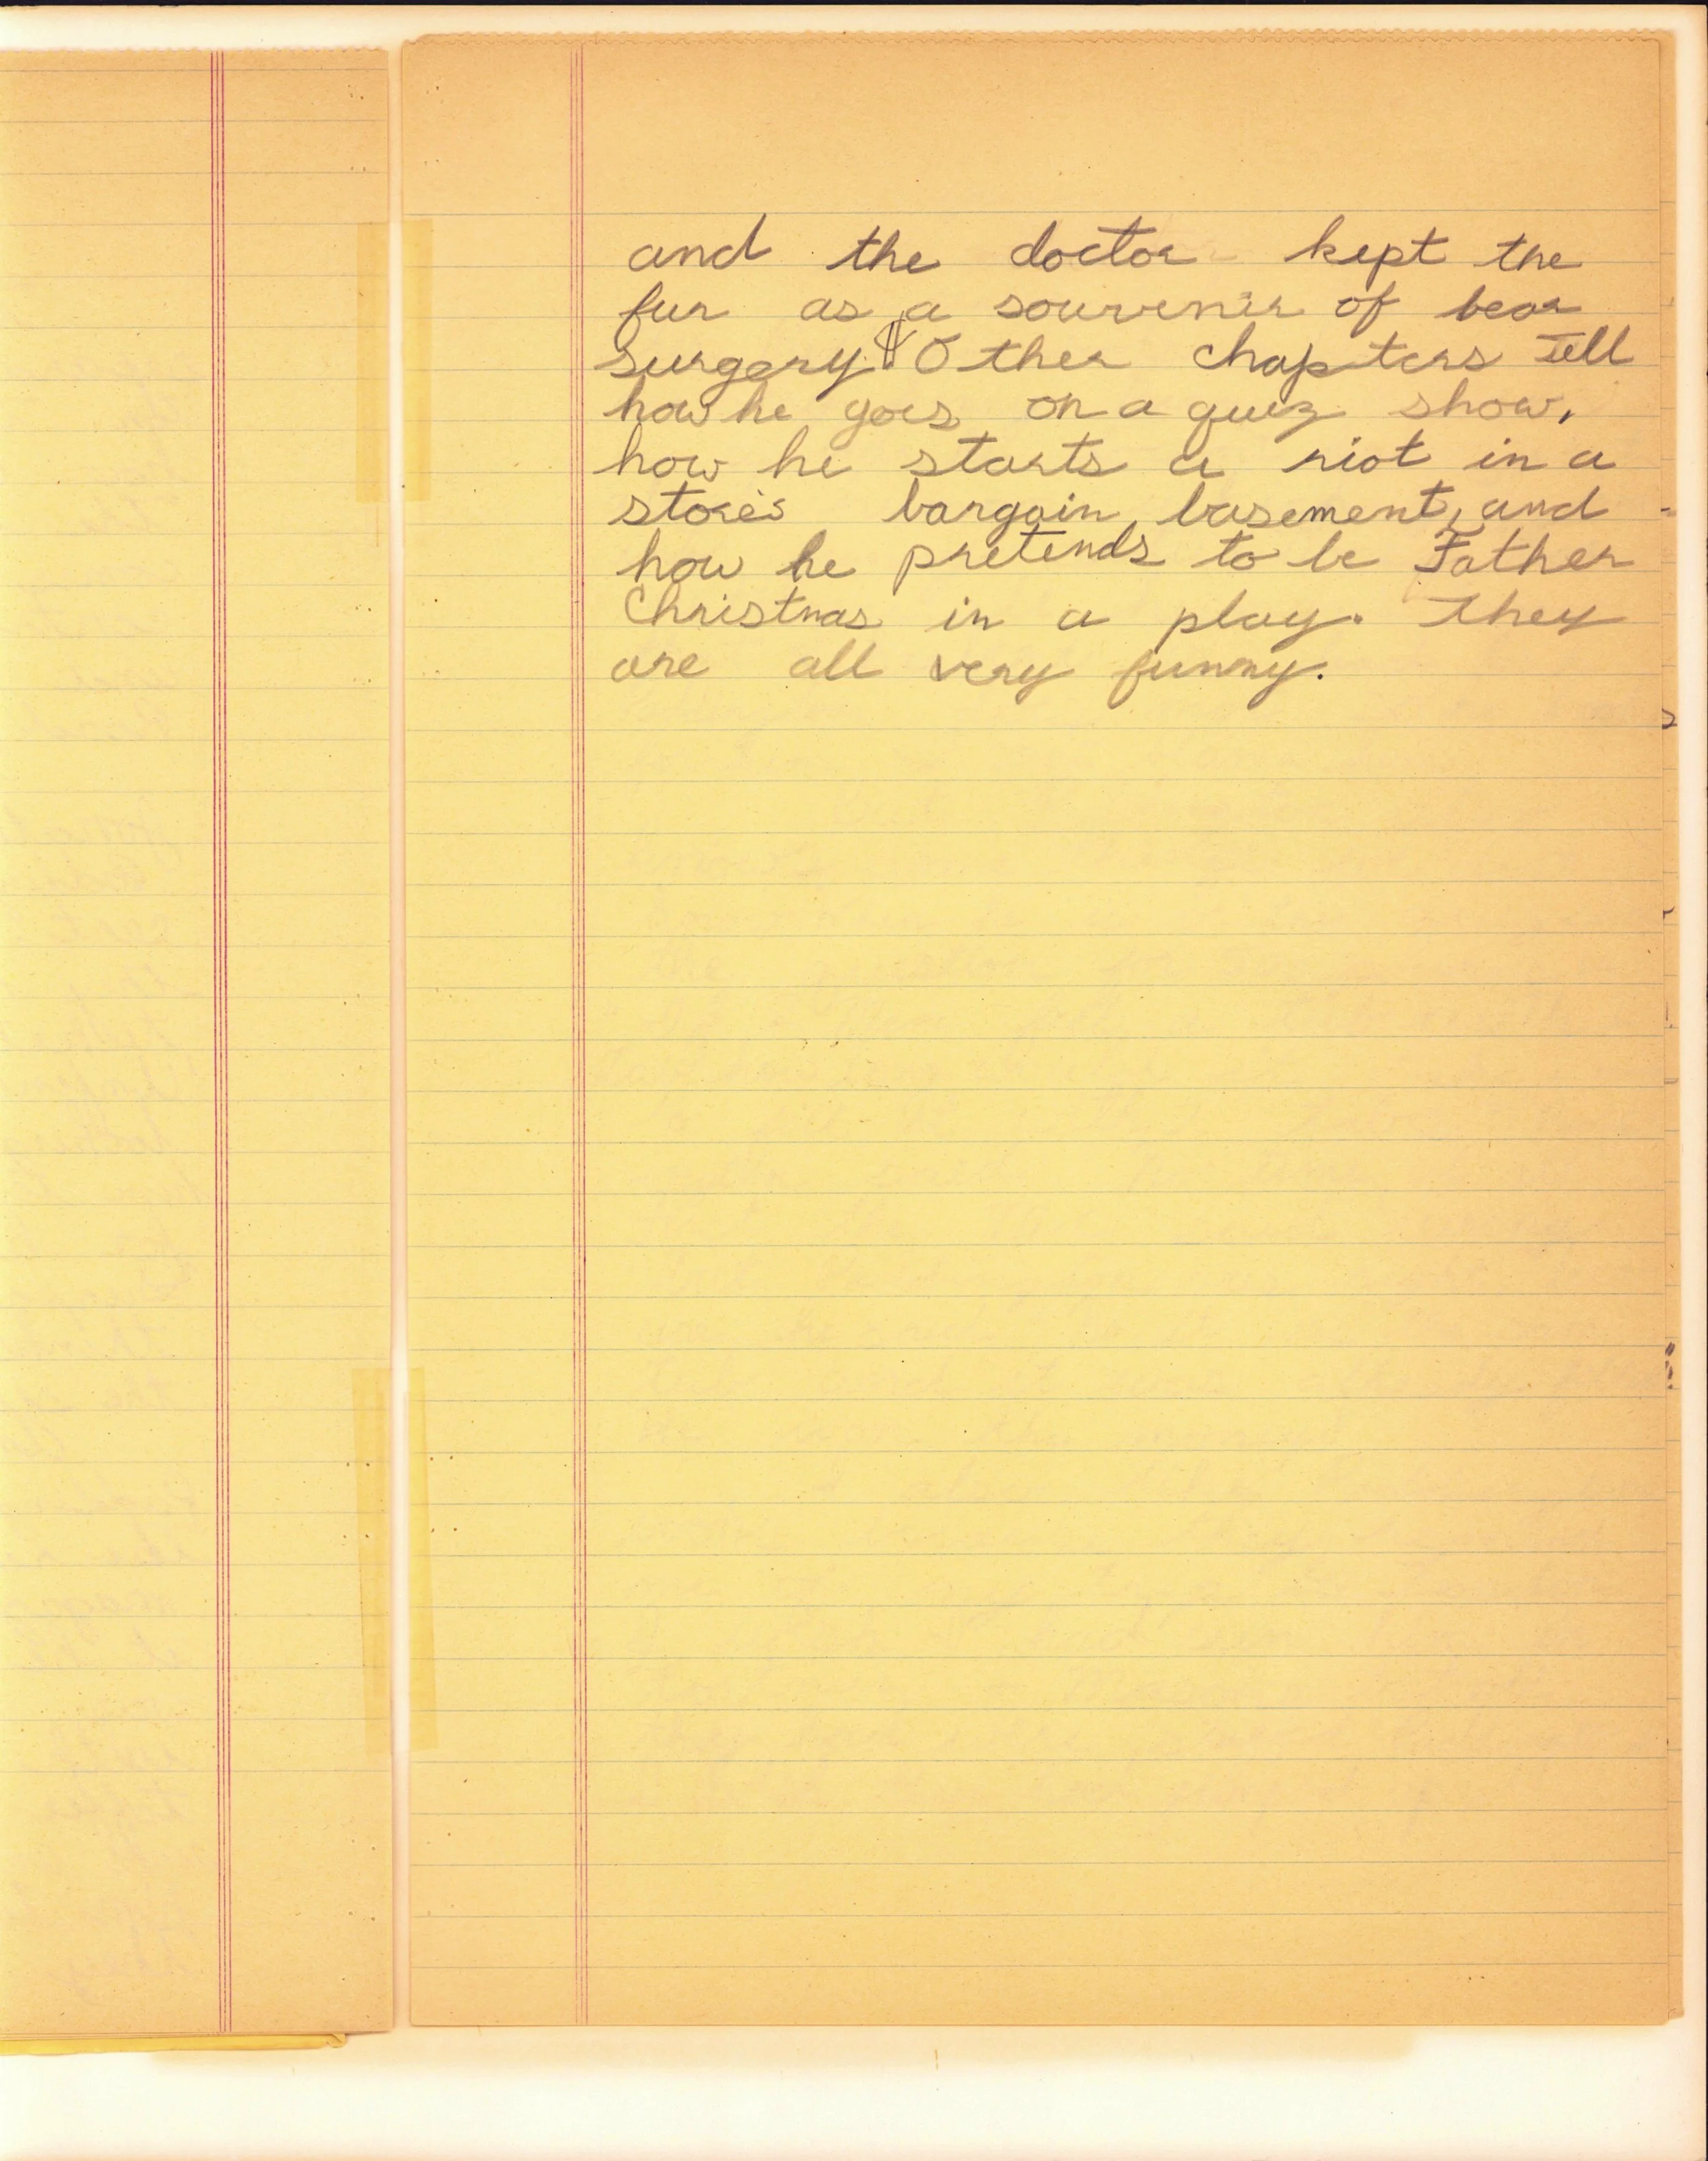 and the doctor kept the
fur as a souvenir of bear
surgery. ¶ Other chapters tell
how he goes on a quiz show,
how he starts a riot in a
store's bargain basement, and
how he pretends to be Father
Christmas in a play. They
are all very funny.